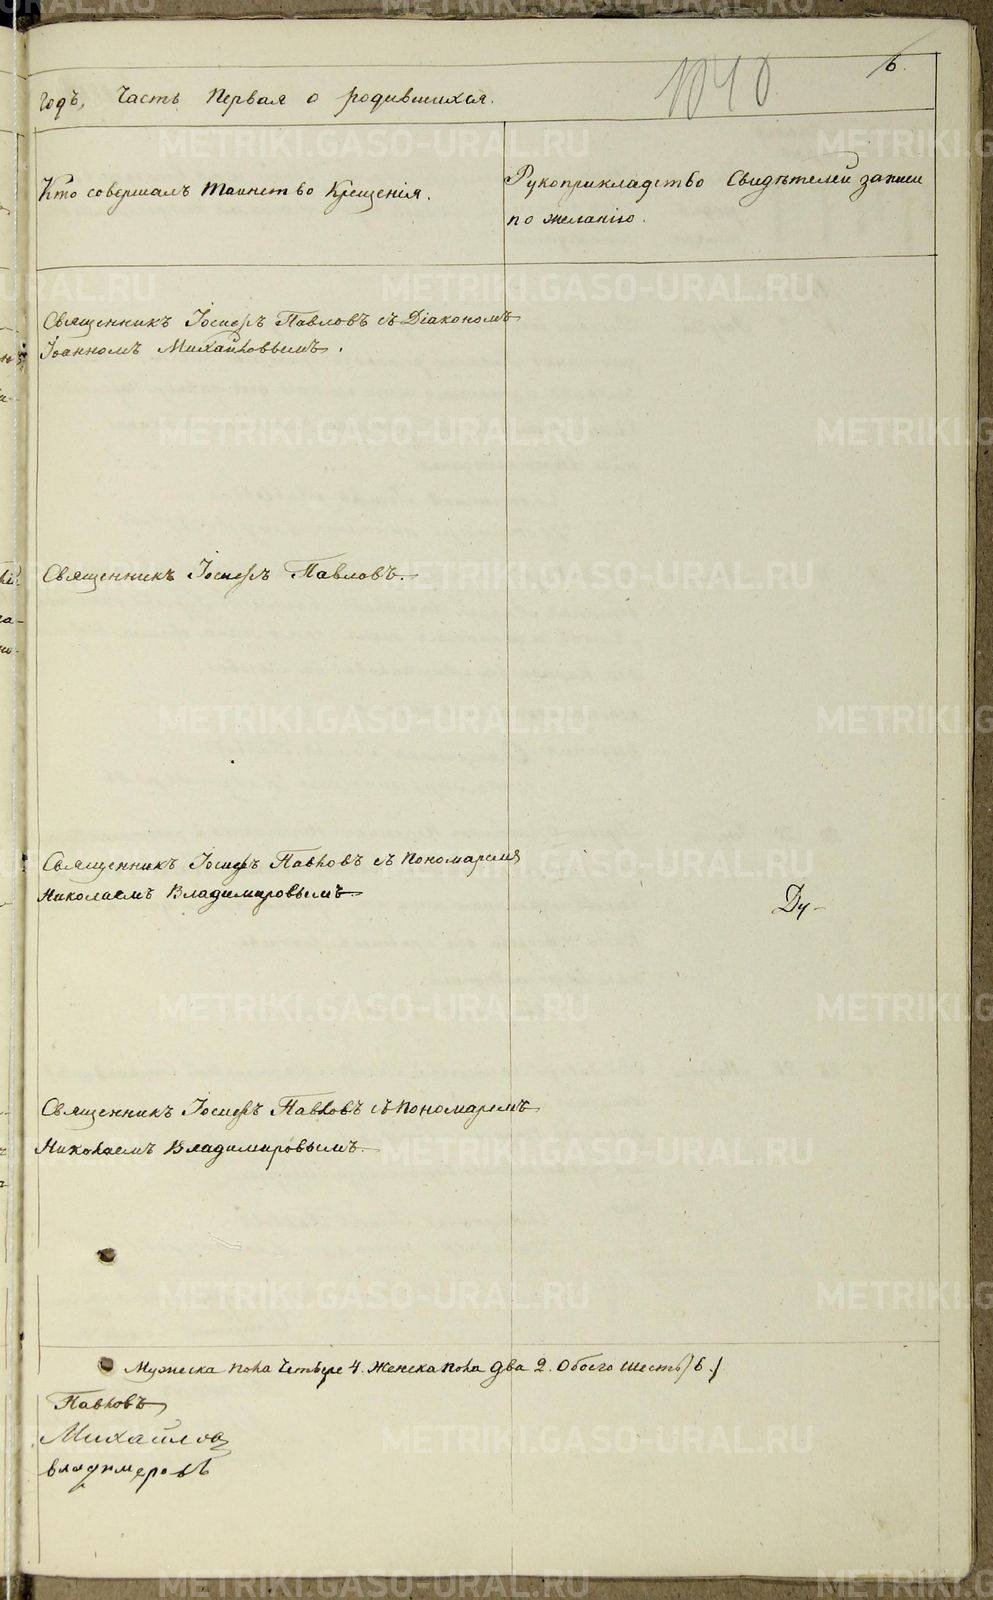 6.
1040
годъ, Часть Первая о родившихся.
Кто совершалъ Таинство Крещенія.
Рукоприкладство Свидѣтелей записи
по желанію.
Священникъ Іосифъ Павловъ съ Діакономъ
Іоанномъ Михайловымъ.
Священникъ Іосифъ Павловъ.
Священникъ Іосифъ Павловъ съ Пономаремъ
Николаемъ Владимировымъ
Ду-
Священникъ Іосифъ Павловъ съ Пономаремъ
Николаемъ Владимировымъ.
Мужеска пола Четыре 4. Женска пола два 2. Обоего шесть /6./
Павловъ
Михайлов
владимеровъ
METRIKI.GASO-URAL.RU